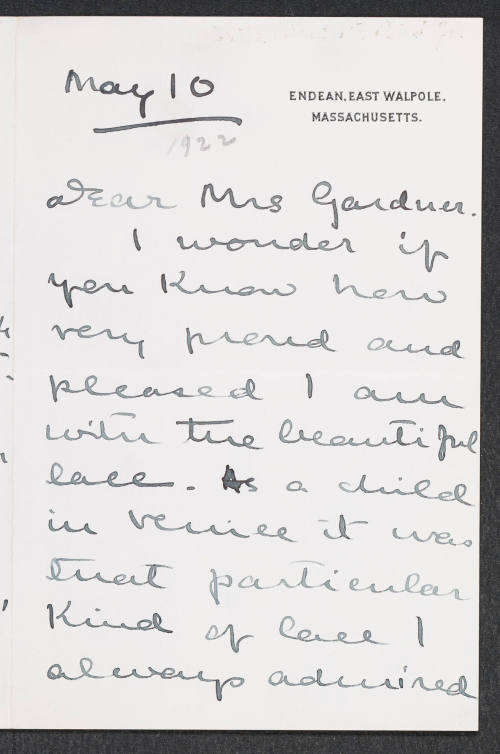 May 10
ENDEAN, EAST WALPOLE.
MASSACHUSETTS.
1922
Dear Mrs Gardner.
I wonder if
you know how
very proud and
pleased I am
with the beautiful
lace. As a child
in Venice it was
that particular
Kind of lace I
always admired